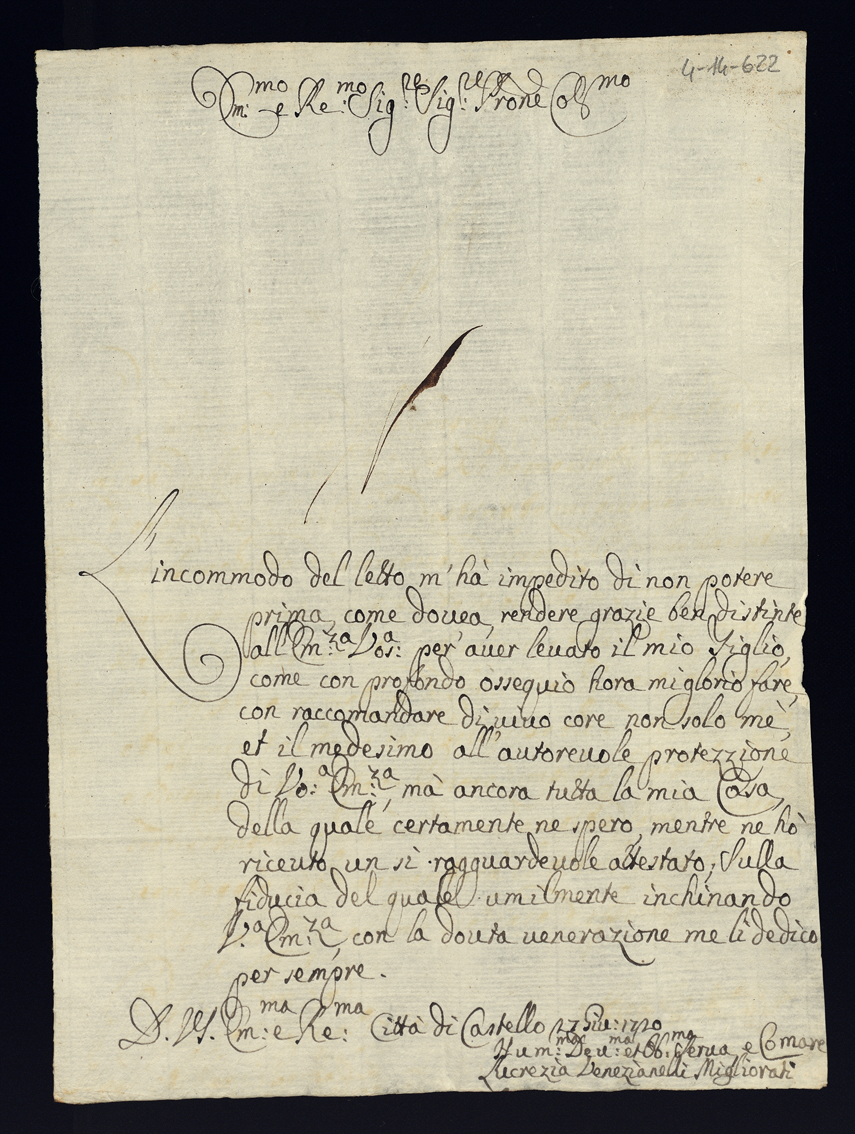 4-14-622
Em:mo e Re:mo Sig:re Sig:re Prone Col:mo
L'incommodo del letto m'hà impedito di non potere
prima, come douea, rendere grazie ben distinte
all'Em:za Vos:a per auer leuato il mio Figlio,
come con profondo ossequio hora mi glorio fare,
con raccomandare di uiuo core non solo mè,
et il medesimo all'autoreuole protezzione
di Vo:a Em:za, mà ancora tutta la mia Casa,
della quale certamente ne spero, mentre ne hò
riceuto un si ragguardeuole attestato; Sulla
fiducia del quale umilmente inchinando
V:a Em:za, con la douta uenerazione me li dedico
per sempre.
D. V. Em:ma e Re:ma Città di Castello 27 Giu: 1720
Hum:ma Deu:ma et Ob:ma Serua, e Comare
Lucrezia Venezianelli Migliorati